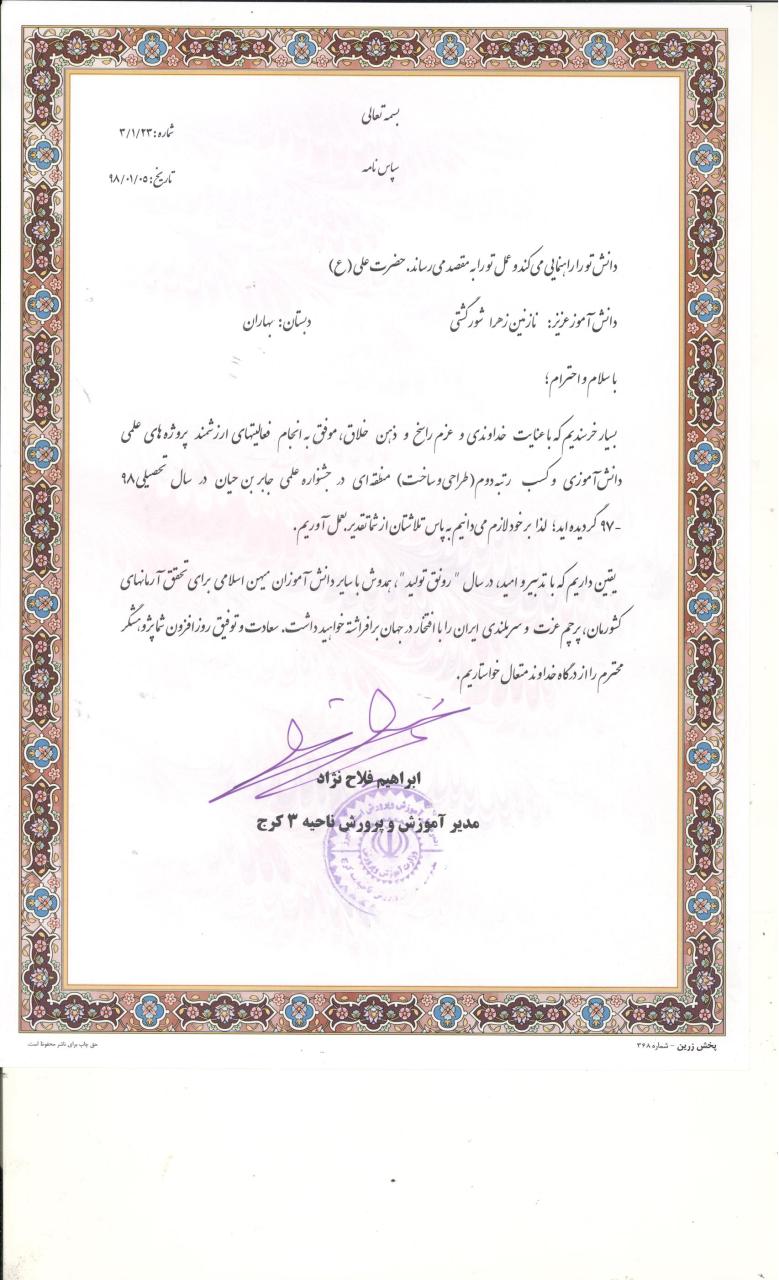 بسمه تعالی
شماره: ۳/۱/۲۳
سپاس نامه
تاریخ: ۹۸/۰۱/۰۵
دانش تو را راهنمایی می کند و عمل تو را به مقصد می رساند. حضرت علی (ع)
دانش آموز عزیز: نازنین زهرا شورگشتی دبستان: بهاران
با سلام و احترام؛
بسیار خرسندیم که با عنایت خداوندی و عزم راسخ و ذهن خلاق، موفق به انجام فعالیتهای ارزشمند پروژه های علمی
دانش آموزی و کسب رتبه دوم (طراحی و ساخت) منطقه ای در جشنواره علمی جابر بن حیان در سال تحصیلی ۹۸
-۹۷ گردیده اید؛ لذا بر خود لازم می دانیم به پاس تلاشتان از شما تقدیر بعمل آوریم.
یقین داریم که با تدبیر و امید، در سال "رونق تولید"، همدوش با سایر دانش آموزان میهن اسلامی برای تحقق آرمانهای
کشورمان، پرچم عزت و سربلندی ایران را با افتخار در جهان برافراشته خواهید داشت. سعادت و توفیق روزافزون شما پژوهشگر
محترم را از درگاه خداوند متعال خواستاریم.
ابراهیم فلاح نژاد
مدیر آموزش و پرورش ناحیه ۳ کرج
وزارت آموزش و پرورش
پخش زرین - شماره ۳۶۸
حق چاپ برای ناشر محفوظ است.